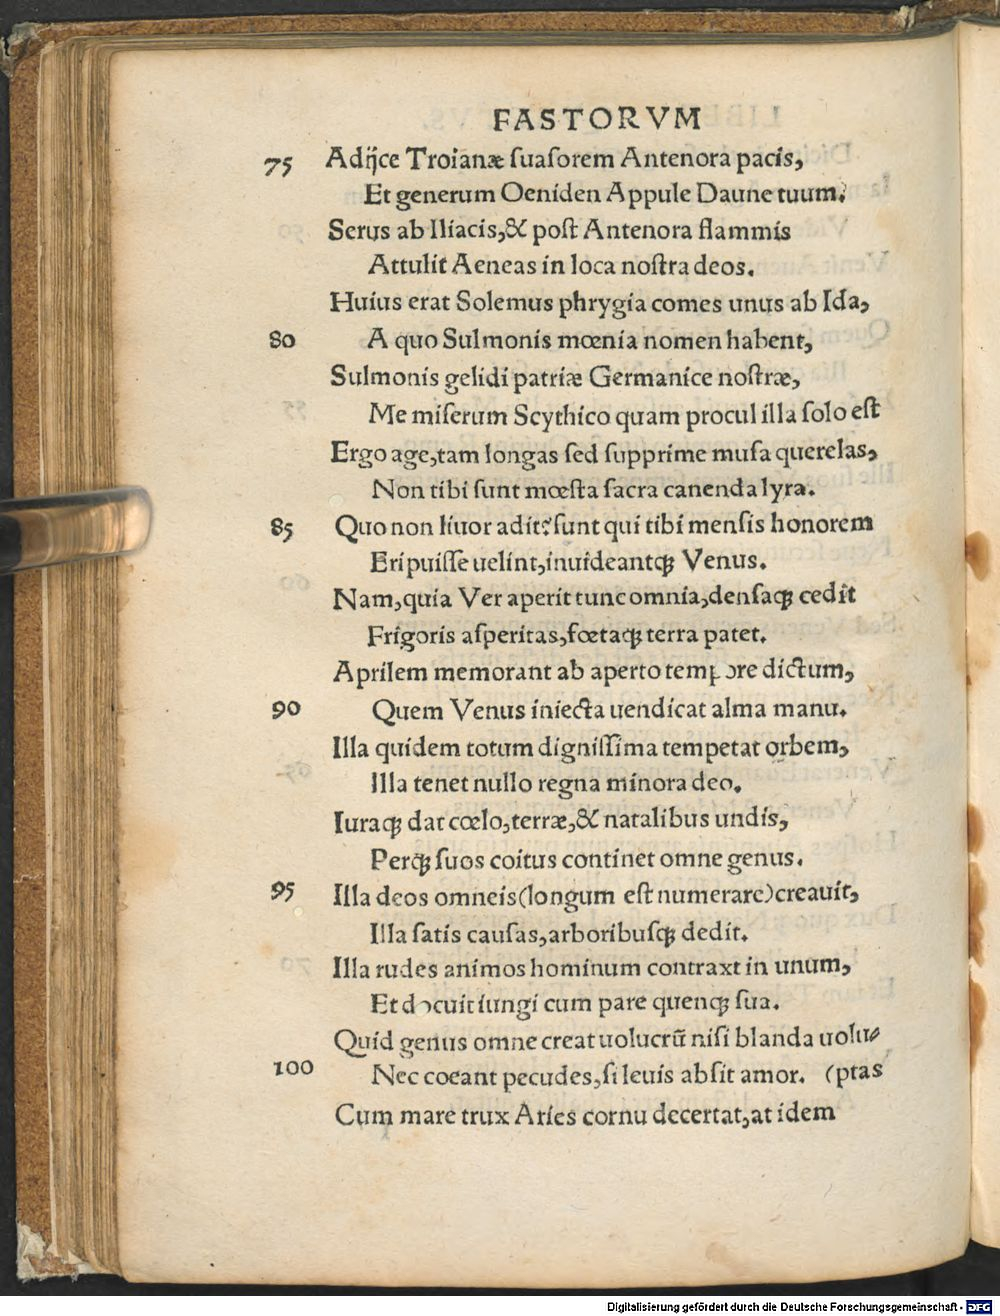 FASTORVM
75 Adijce Troianæ suasorem Antenora pacis,
Et generum Oeniden Appule Daune tuum.
Serus ab Iliacis,& post Antenora flammis
Attulit Aeneas in loca nostra deos.
Huius erat Solemus phrygia comes unus ab Ida,
80 A quo Sulmonis mœnia nomen habent,
Sulmonis gelidi patriæ Germanice nostræ,
Me miserum Scythico quam procul illa solo est
Ergo age,tam longas sed supprime musa querelas,
Non tibi sunt mœsta sacra canenda lyra.
85 Quo non liuor adit? sunt qui tibi mensis honorem
Eripuisse uelint,inuideantq; Venus.
Nam,quia Ver aperit tunc omnia,densaq; cedit
Frigoris asperitas,fœtaq; terra patet.
Aprilem memorant ab aperto tempore dictum,
90 Quem Venus iniecta uendicat alma manu.
Illa quidem totum dignissima tempetat orbem,
Illa tenet nullo regna minora deo.
Iuraq; dat cœlo,terræ,& natalibus undis,
Perq; suos coitus continet omne genus.
95 Illa deos omneis(longum est numerare)creauit,
Illa satis causas,arboribusq; dedit.
Illa rudes animos hominum contraxt in unum,
Et docuit iungi cum pare quenq; sua.
Quid genus omne creat uolucrũ nisi blanda uolu-
100 Nec coeant pecudes,si leuis absit amor. (ptas
Cum mare trux Aries cornu decertat,at idem
Digitalisierung gefördert durch die Deutsche Forschungsgemeinschaft - DFG